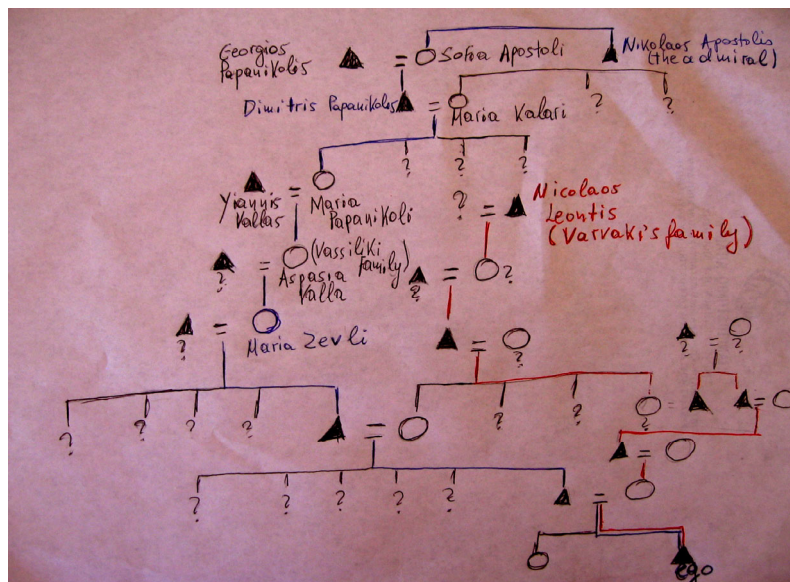 Georgios
Papanikolis
=
Sofia Apostoli
Nikolaos Apostolis
(the admiral)
Dimitris Papanikolis
=
Maria Kalari
?
?
?
?
?
Yiannis
Kallas
=
Maria
Papanikoli
?
=
Nicolaos
Leontis
(Varvaki's family)
?
=
(Vassiliki
family)
Aspasia
Valla
?
=
?
?
=
Maria Zevli
=
?
?
=
?
?
?
?
?
?
?
?
=
=
=
?
?
?
?
?
=
=
ego